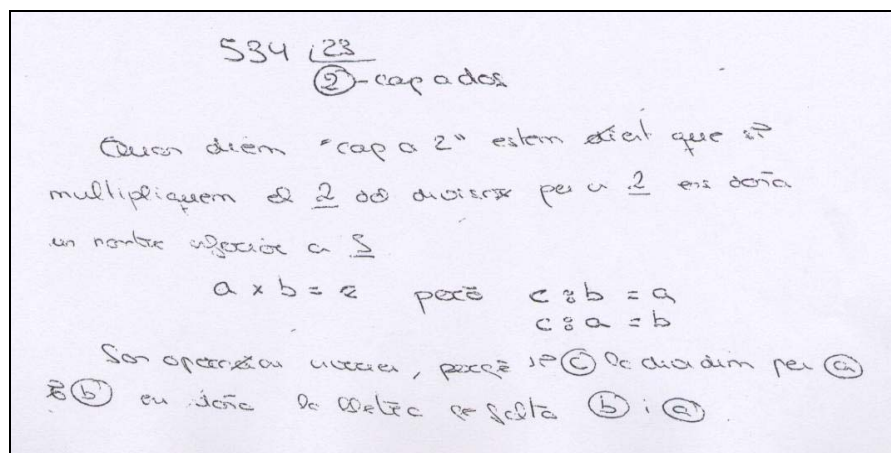 534 23
2 - cap a dos
Quan diem "cap a 2" estem dient que si
multipliquem el 2 del divisor per un 2 ens dona
un nombre inferior a 5
a x b = c però c : b = a
c : a = b
Son operacion, perquè si c la dividim per a
b en dona la lletra que falta b i a